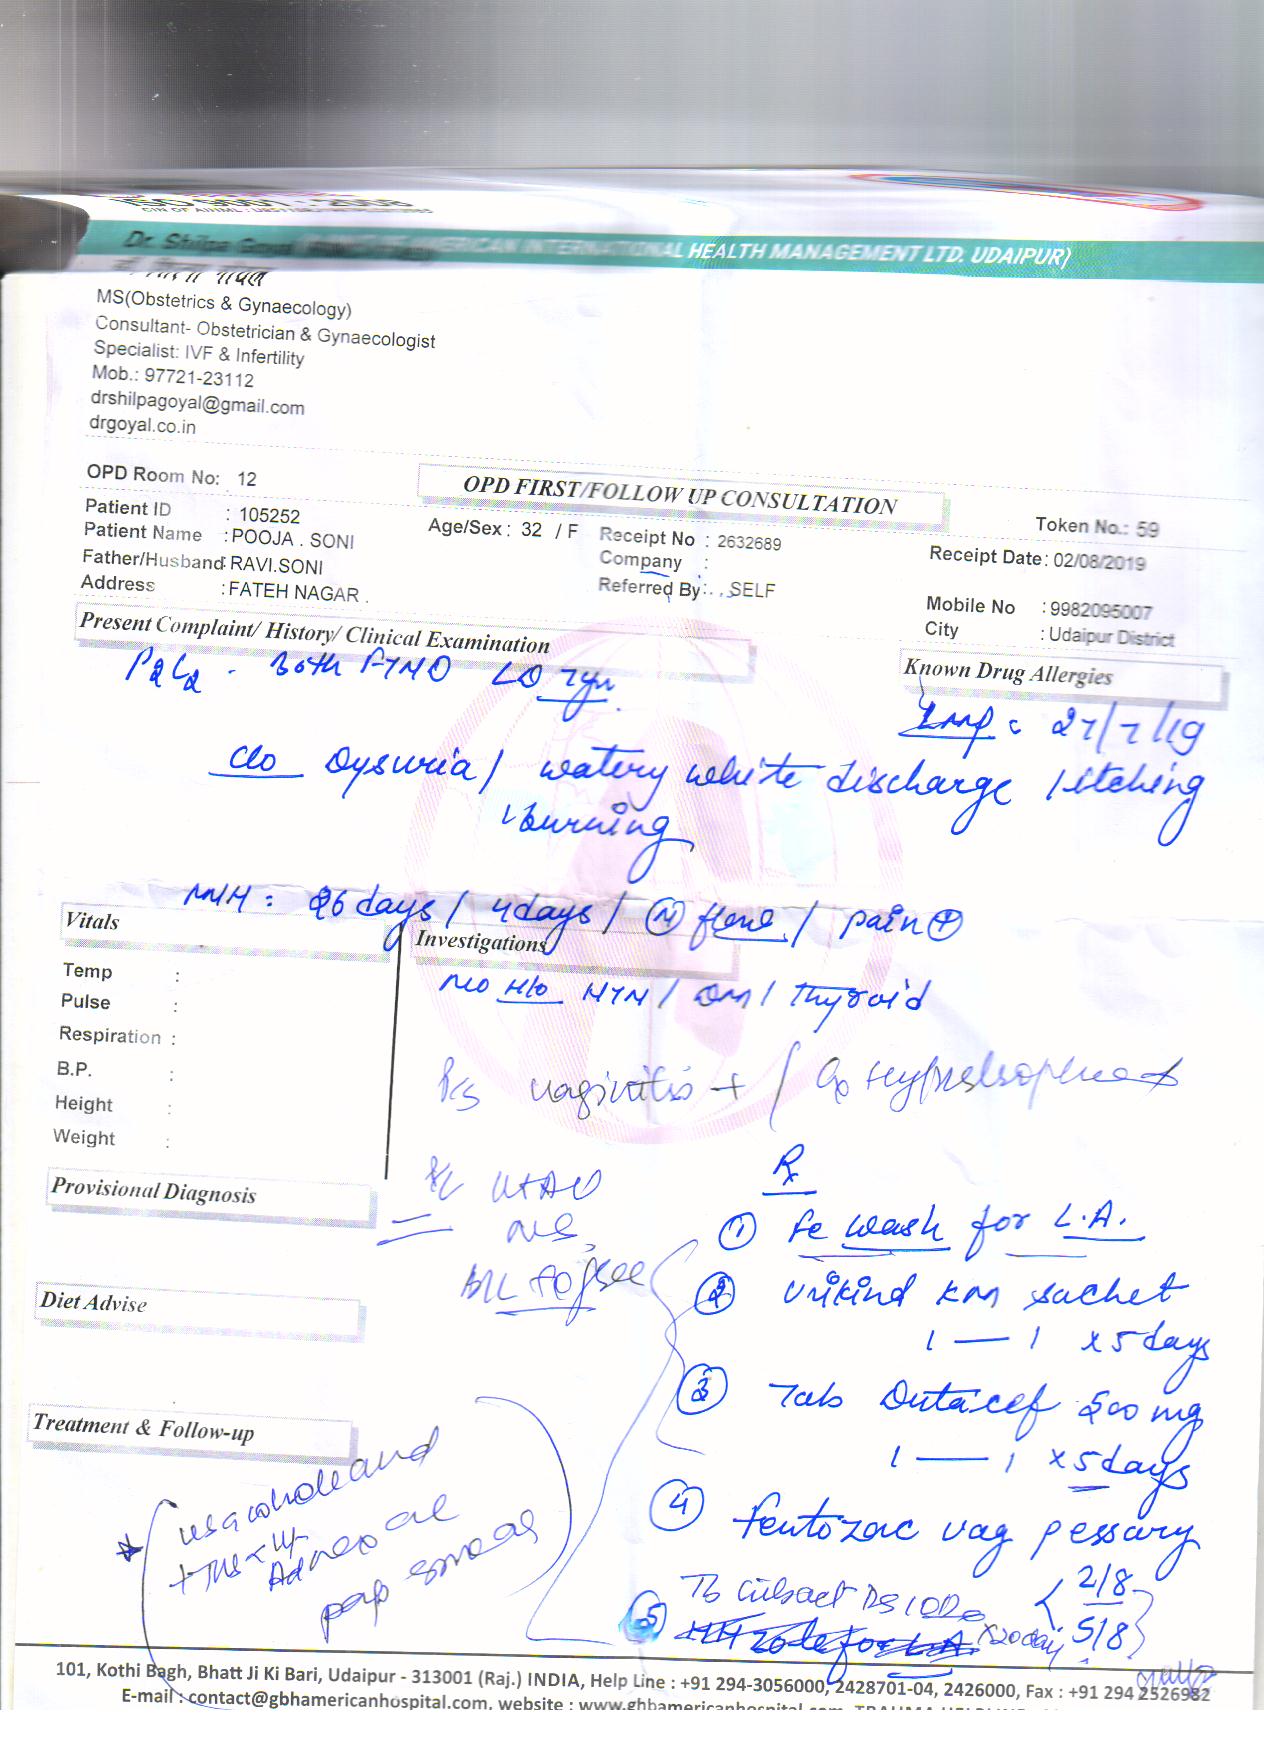 ISO 9001 : 2008
Dr. Shilpa Goyal AMERICAN INTERNATIONAL HEALTH MANAGEMENT LTD. UDAIPUR)
MS(Obstetrics & Gynaecology)
Consultant- Obstetrician & Gynaecologist
Specialist: IVF & Infertility
Mob.: 97721-23112
drshilpagoyal@gmail.com
drgoyal.co.in
OPD Room No: 12
OPD FIRST/FOLLOW UP CONSULTATION
Token No.: 59
Patient ID : 105252
Patient Name : POOJA . SONI
Age/Sex : 32 / F
Receipt No : 2632689
Receipt Date: 02/08/2019
Father/Husband: RAVI.SONI
Company :
Address : FATEH NAGAR .
Referred By: . , SELF
Mobile No : 9982095007
City : Udaipur District
Present Complaint/ History/ Clinical Examination
Known Drug Allergies
P2L2 - Both FTND LD 7yr.
LMP : 27/7/19
c/o Dysuria / watery white discharge / itching
/ burning
M/H : 26 days / 4 days / N flow / pain +
Vitals
Investigations
no H/o HTN / DM / Thyroid
Temp :
Pulse :
Respiration :
B.P. :
Height :
Weight :
P/S vaginitis + / Cx hypertrophied
Provisional Diagnosis
Rx
P/V UTAV
NS
B/L Fx free
① fe wash for L.A.
② Urikind KM sachet
1 — 1 x 5 days
Diet Advise
③ Tab Dutacef 500 mg
1 — 1 x 5 days
Treatment & Follow-up
④ Fentozac vag pessary
2/8
5/8
⑤ Tb
x 20 day
USG whole abd
Adnexal
pap smear
101, Kothi Bagh, Bhatt Ji Ki Bari, Udaipur - 313001 (Raj.) INDIA, Help Line : +91 294-3056000, 2428701-04, 2426000, Fax : +91 294 2526982
E-mail : contact@gbhamericanhospital.com, website : www.gbhamericanhospital.com,